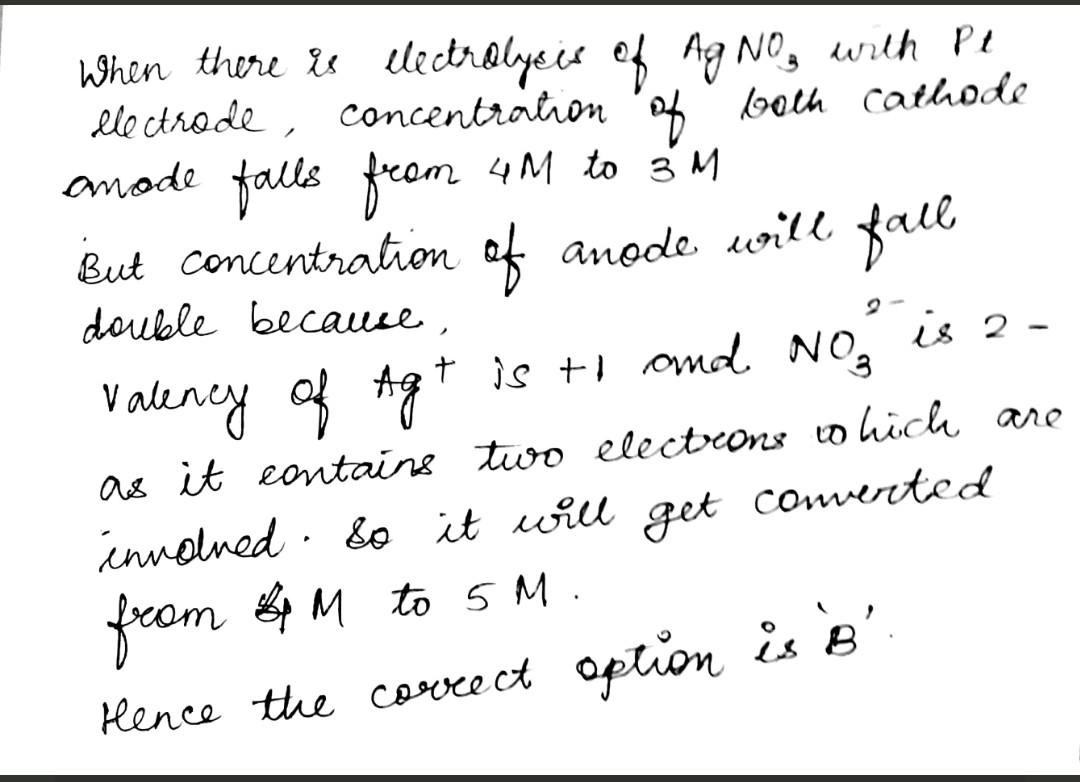 When there is electrolysis of AgNO₃ with Pt
electrode, concentration of both cathode
anode falls from 4M to 3M
But concentration of anode will fall
double because,
Valency of Ag⁺ is +1 and NO₃²⁻ is 2-
as it contains two electrons which are
involved. So it will get converted
from 4M to 5M.
Hence the correct option is 'B'.